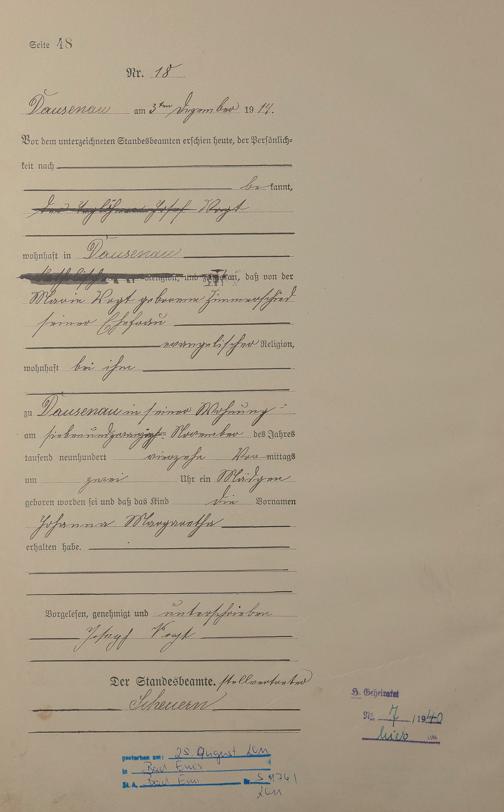 Seite 48
Nr. 18
Dausenau am 3ten Dezember 1914.
Vor dem unterzeichneten Standesbeamten erschien heute, der Persönlich-
keit nach
be kannt,
der Taglöhner Josef Vogt
wohnhaft in Dausenau
Religion, und zeigte an, daß von der
Marie Vogt geborene Zimmerschied
seiner Ehefrau
evangelischer Religion,
wohnhaft bei ihm
zu Dausenau in seiner Wohnung
am siebenundzwanzigsten November des Jahres
tausend neunhundert vierzehn Vormittags
um zwei Uhr ein Mädchen
geboren worden sei und daß das Kind die Vornamen
Johanna Margaretha
erhalten habe.
Vorgelesen, genehmigt und unterschrieben
Josef Vogt
Der Standesbeamte. stellvertreter
Scheuern
Geheiratet
Nr. 7 / 1940
hier
gestorben am: 25 August 2011
in Bad Ems
St. A. Bad Ems Nr.
2011